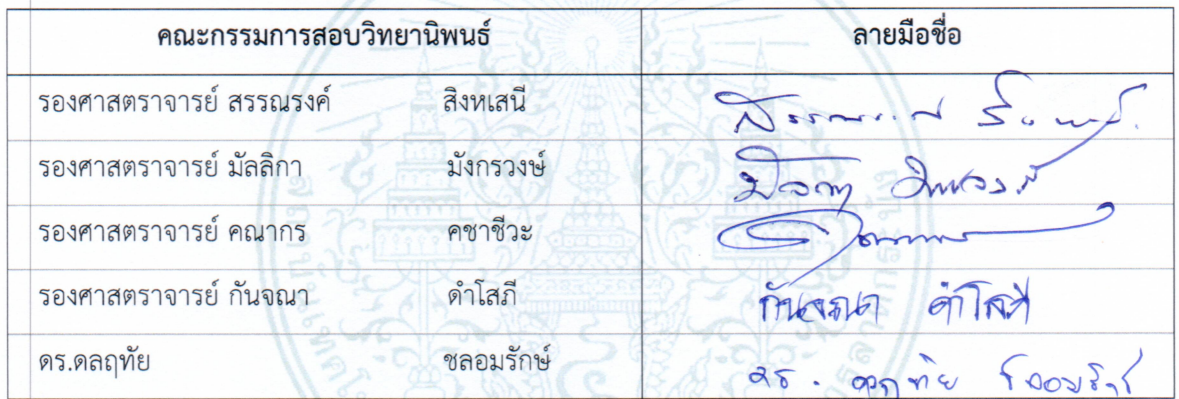 คณะกรรมการสอบวิทยานิพนธ์ ลายมือชื่อ
รองศาสตราจารย์ สรรณรงค์ สิงหเสนี
รองศาสตราจารย์ มัลลิกา มังกรวงษ์
รองศาสตราจารย์ คณากร คชาชีวะ
รองศาสตราจารย์ กันจณา ดำโสภี กันจณา ดำโสภี
ดร.ดลฤทัย ชลอมรักษ์ ดร. ดลฤทัย ชลอมรักษ์